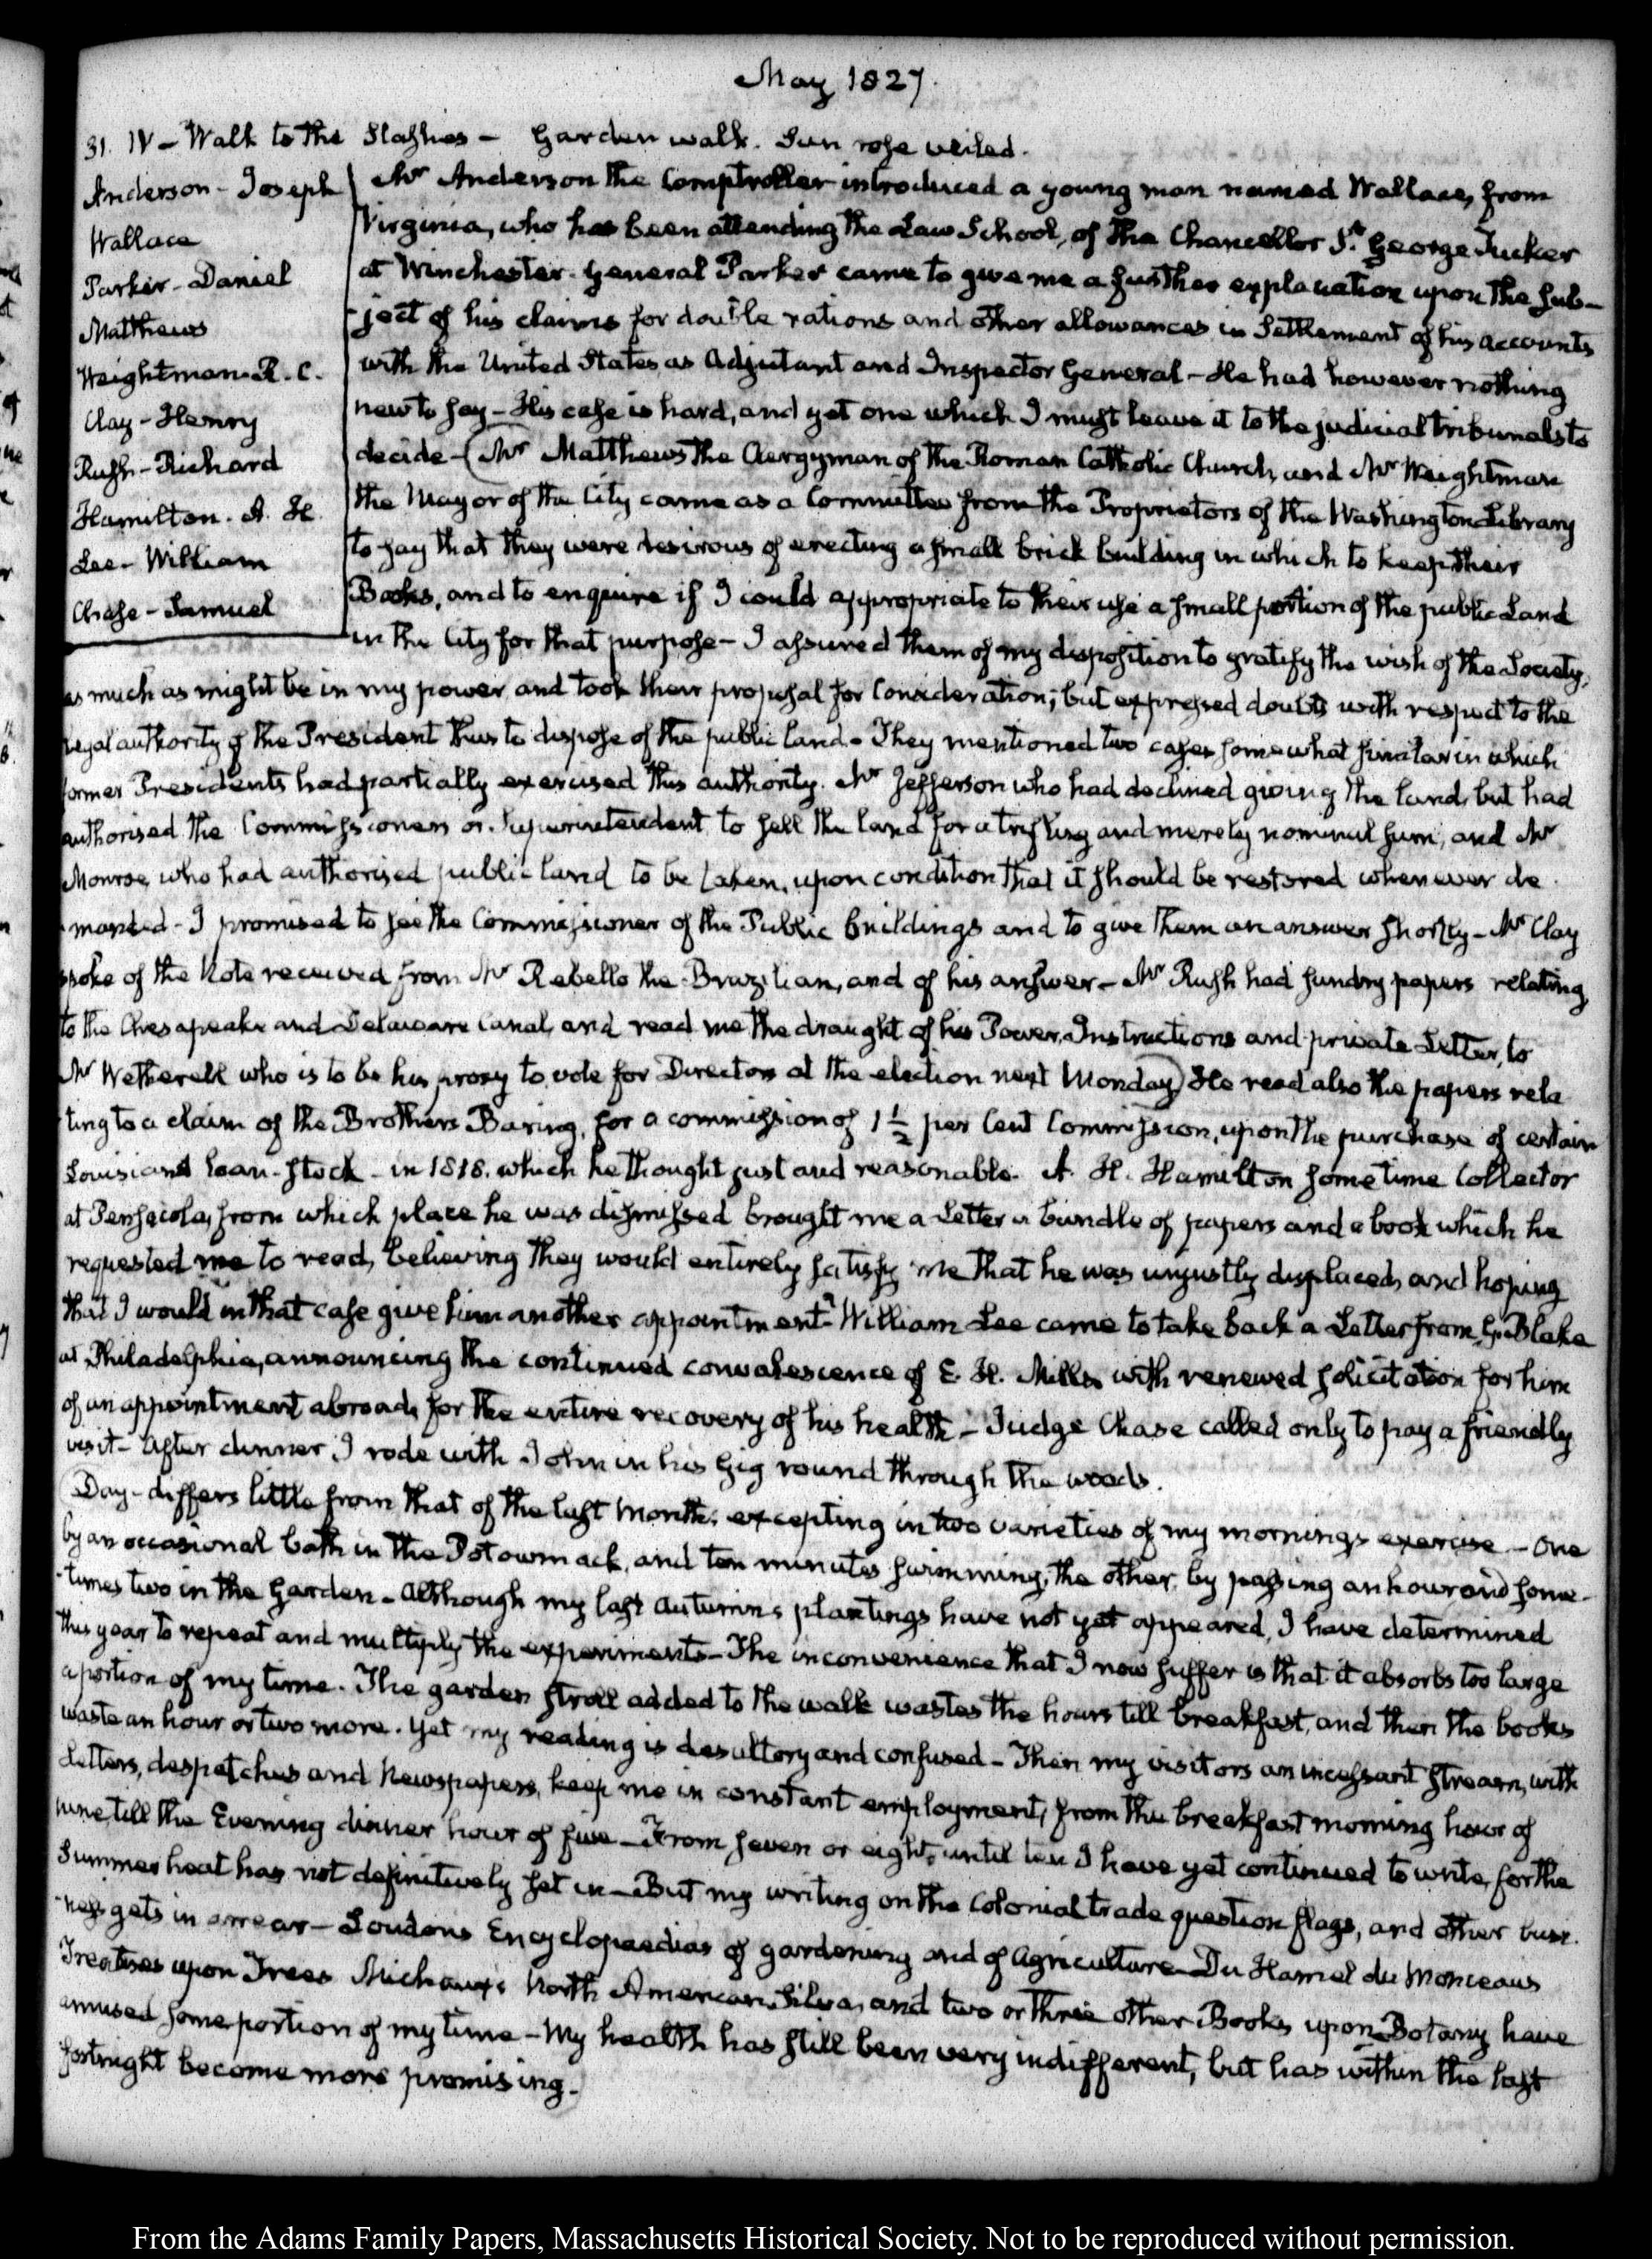 May 1827.
31. IV – Walk to the Slashes – Garden walk. Sun rose veiled.
Anderson – Joseph
Wallace
Parker – Daniel
Matthews
Weightman. R. C.
Clay – Henry
Rush – Richard
Hamilton. A. H.
Lee – William
Chase – Samuel
Mr Anderson the Comptroller introduced a young man named Wallace, from
Virginia, who has been attending the Law School, of the Chancellor St. George Tucker
at Winchester. General Parker came to give me a further explanation upon the sub-
-ject of his claims for double rations and other allowances in Settlement of his accounts
with the United States as Adjutant and Inspector General – He had however nothing
new to say – His case is hard, and yet one which I must leave it to the judicial tribunals to
decide – (Mr Matthews the Clergyman of the Roman Catholic Church, and Mr Weightman
the Mayor of the City came as a Committee from the Proprietors of the Washington Library
to say that they were desirous of erecting a small brick building in which to keep their
Books, and to enquire if I could appropriate to their use a small portion of the public Land
in the City for that purpose – I assured them of my disposition to gratify the wish of the Society,
as much as might be in my power and took their proposal for Consideration; but expressed doubts with respect to the
legal authority of the President thus to dispose of the public land – They mentioned two cases somewhat similar in which
former Presidents had partially exercised this authority. Mr Jefferson who had declined giving the land, but had
authorised the Commissioners or Superintendent to sell the land for a trifling and merely nominal sum, and Mr
Monroe, who had authorised public land to be taken, upon condition that it should be restored whenever de
-manded – I promised to see the Commissioner of the Public buildings and to give them an answer shortly – Mr Clay
spoke of the Note received from Mr Rebello the Brazilian, and of his answer – Mr Rush had sundry papers relating
to the Chesapeake and Delaware Canal, and read me the draught of his Power, Instructions and private Letter, to
Mr Wetherell who is to be his proxy to vote for Directors at the election next Monday) He read also the papers rela
-ting to a claim of the Brothers Baring, for a commission of 1 1/2 per Cent Commission, upon the purchase of certain
Louisiana loan-stock – in 1818. which he thought just and reasonable. A. H. Hamilton some time Collector
at Pensacola, from which place he was dismissed brought me a Letter a bundle of papers and a book which he
requested me to read, believing they would entirely satisfy me that he was unjustly displaced, and hoping
that I would in that case give him another appointment – William Lee came to take back a Letter from G. Blake
at Philadelphia, announcing the continued convalescence of E. H. Mills with renewed solicitation for him
of an appointment abroad, for the entire recovery of his health – Judge Chase called only to pay a friendly
visit – After dinner I rode with John in his Gig round through the woods.
Day – differs little from that of the last Month: excepting in two varieties of my mornings exercise – One
by an occasional bath in the Potowmack, and ten minutes swimming, the other, by passing an hour and some-
-times two in the Garden – Although my last Autumns plantings have not yet appeared, I have determined
this year to repeat and multiply the experiments – The inconvenience that I now suffer is that it absorbs too large
a portion of my time. The garden stroll added to the walk wastes the hours till breakfast, and then the books
waste an hour or two more. Yet my reading is desultory and confused – Then my visitors an incessant stream, with
Letters, despatches and Newspapers, keep me in constant employment, from the breakfast morning hour of
nine, till the Evening dinner hour of five – From seven or eight, until ten I have yet continued to write, for the
Summer heat has not definitively set in – But my writing on the Colonial trade question flags, and other busi-
-ness gets in arrear – Loudons Encyclopaedias of gardening and of Agriculture – Du Hamel du Monceaus
Treatises upon Trees Michaux's North American Silva, and two or three other Books upon Botany have
amused some portion of my time – My health has still been very indifferent, but has within the last
fortnight become more promising.
From the Adams Family Papers, Massachusetts Historical Society. Not to be reproduced without permission.